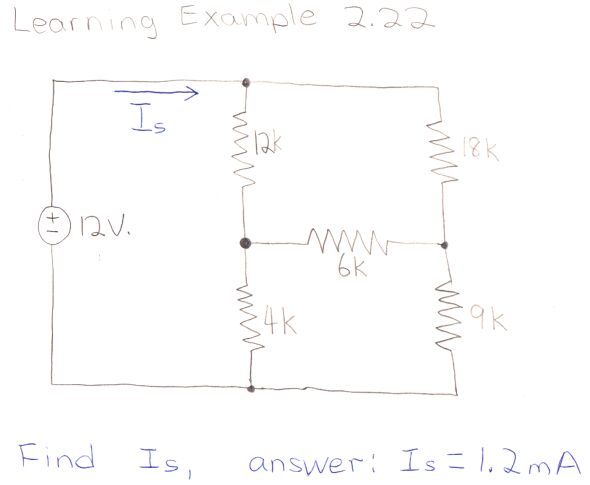 Learning Example 2.22
Is
12k
18k
+
-
12V.
6k
4k
9k
Find Is, answer: Is = 1.2mA